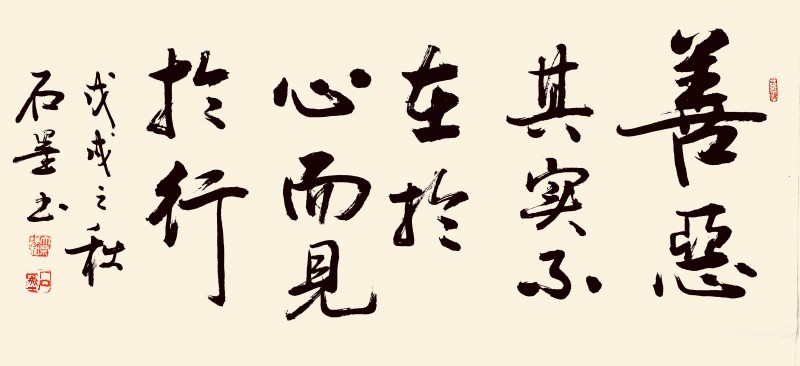 善惡
其实不
在於
心而見
於行
戊戌之秋
石墨书